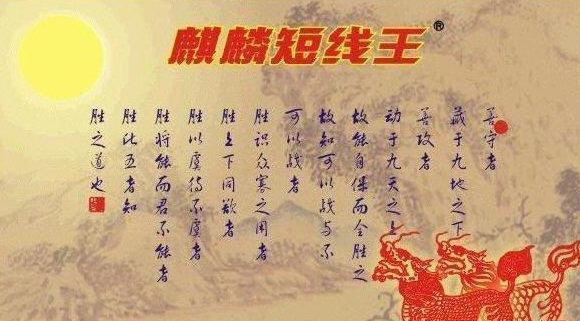 麒麟短线王®
善守者
藏于九地之下
善攻者
动于九天之上
故能自保而全胜之
故知可以战与不
可以战者
胜识众寡之用者
胜上下同欲者
胜以虞待不虞者
胜将能而君不能者
胜此五者知
胜之道也